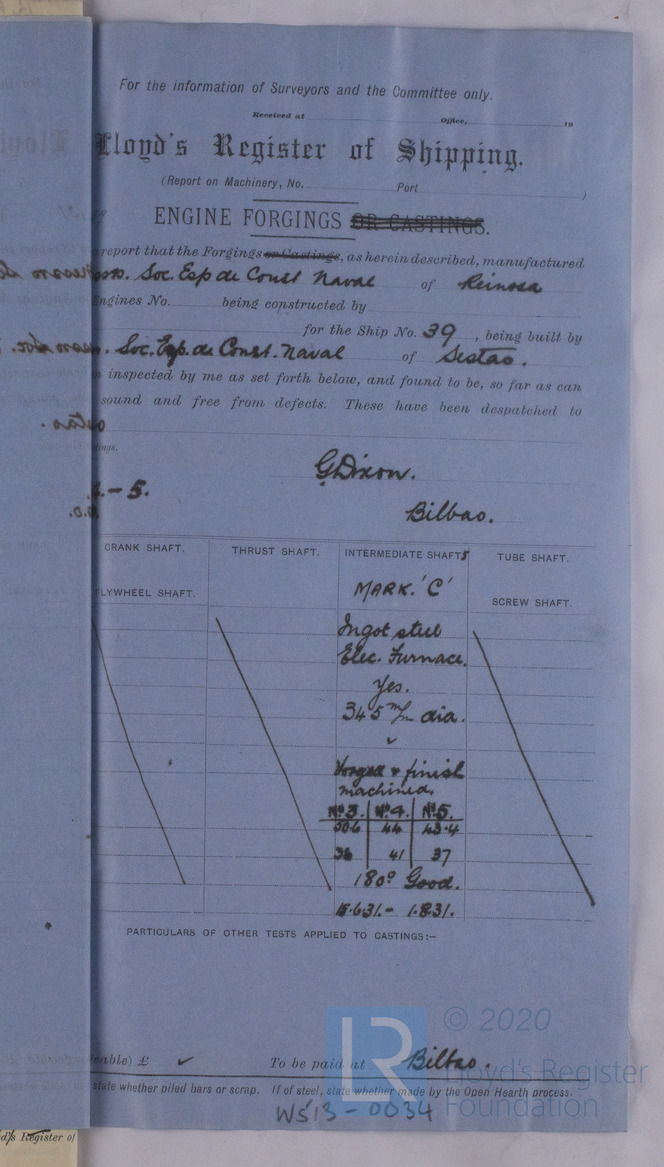 For the information of Surveyors and the Committee only.
Received at Office, 19
Lloyd's Register of Shipping.
(Report on Machinery, No. Port )
ENGINE FORGINGS OR CASTINGS.
report that the Forgings or Castings, as herein described, manufactured
Soc. Esp de Const Naval of Reinosa
Engines No. being constructed by
for the Ship No. 39, being built by
Soc. Esp. de Const. Naval of Sestao.
inspected by me as set forth below, and found to be, so far as can
sound and free from defects. These have been despatched to
G Dixon.
- 5.
Bilbao.
CRANK SHAFT. THRUST SHAFT. INTERMEDIATE SHAFTS TUBE SHAFT.
FLYWHEEL SHAFT. MARK. 'C' SCREW SHAFT.
Ingot steel
Elec. Furnace.
Yes.
345 m/m dia.
Forged & finish
machined.
No 3. No 4. No 5.
50.6 44 43.4
36 41 37
180° Good.
15.6.31. - 1.8.31.
PARTICULARS OF OTHER TESTS APPLIED TO CASTINGS:—
£ To be paid at Bilbao.
state whether piled bars or scrap. If of steel, state whether made by the Open Hearth process.
W513-0034
d's Register of
© 2020
Lloyd's Register
Foundation
LR